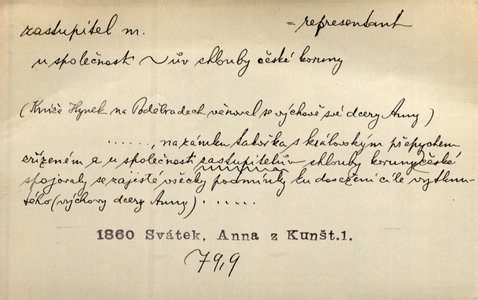 zastupitel m. = representant
u společnost -ův chlouby české koruny
(Kníže Hynek na Poděbradech věnoval se výchově své dcery Anny)
......, na zámku takořka s královským přepychem
zřízeném a u společnosti zastupitelův chlouby koruny české
spojovaly se zajisté všecky podmínky ku dosažení cíle vytknu-
tého (výchovy dcery Anny) .....
1860 Svátek, Anna z Kunšt.1.
79,9